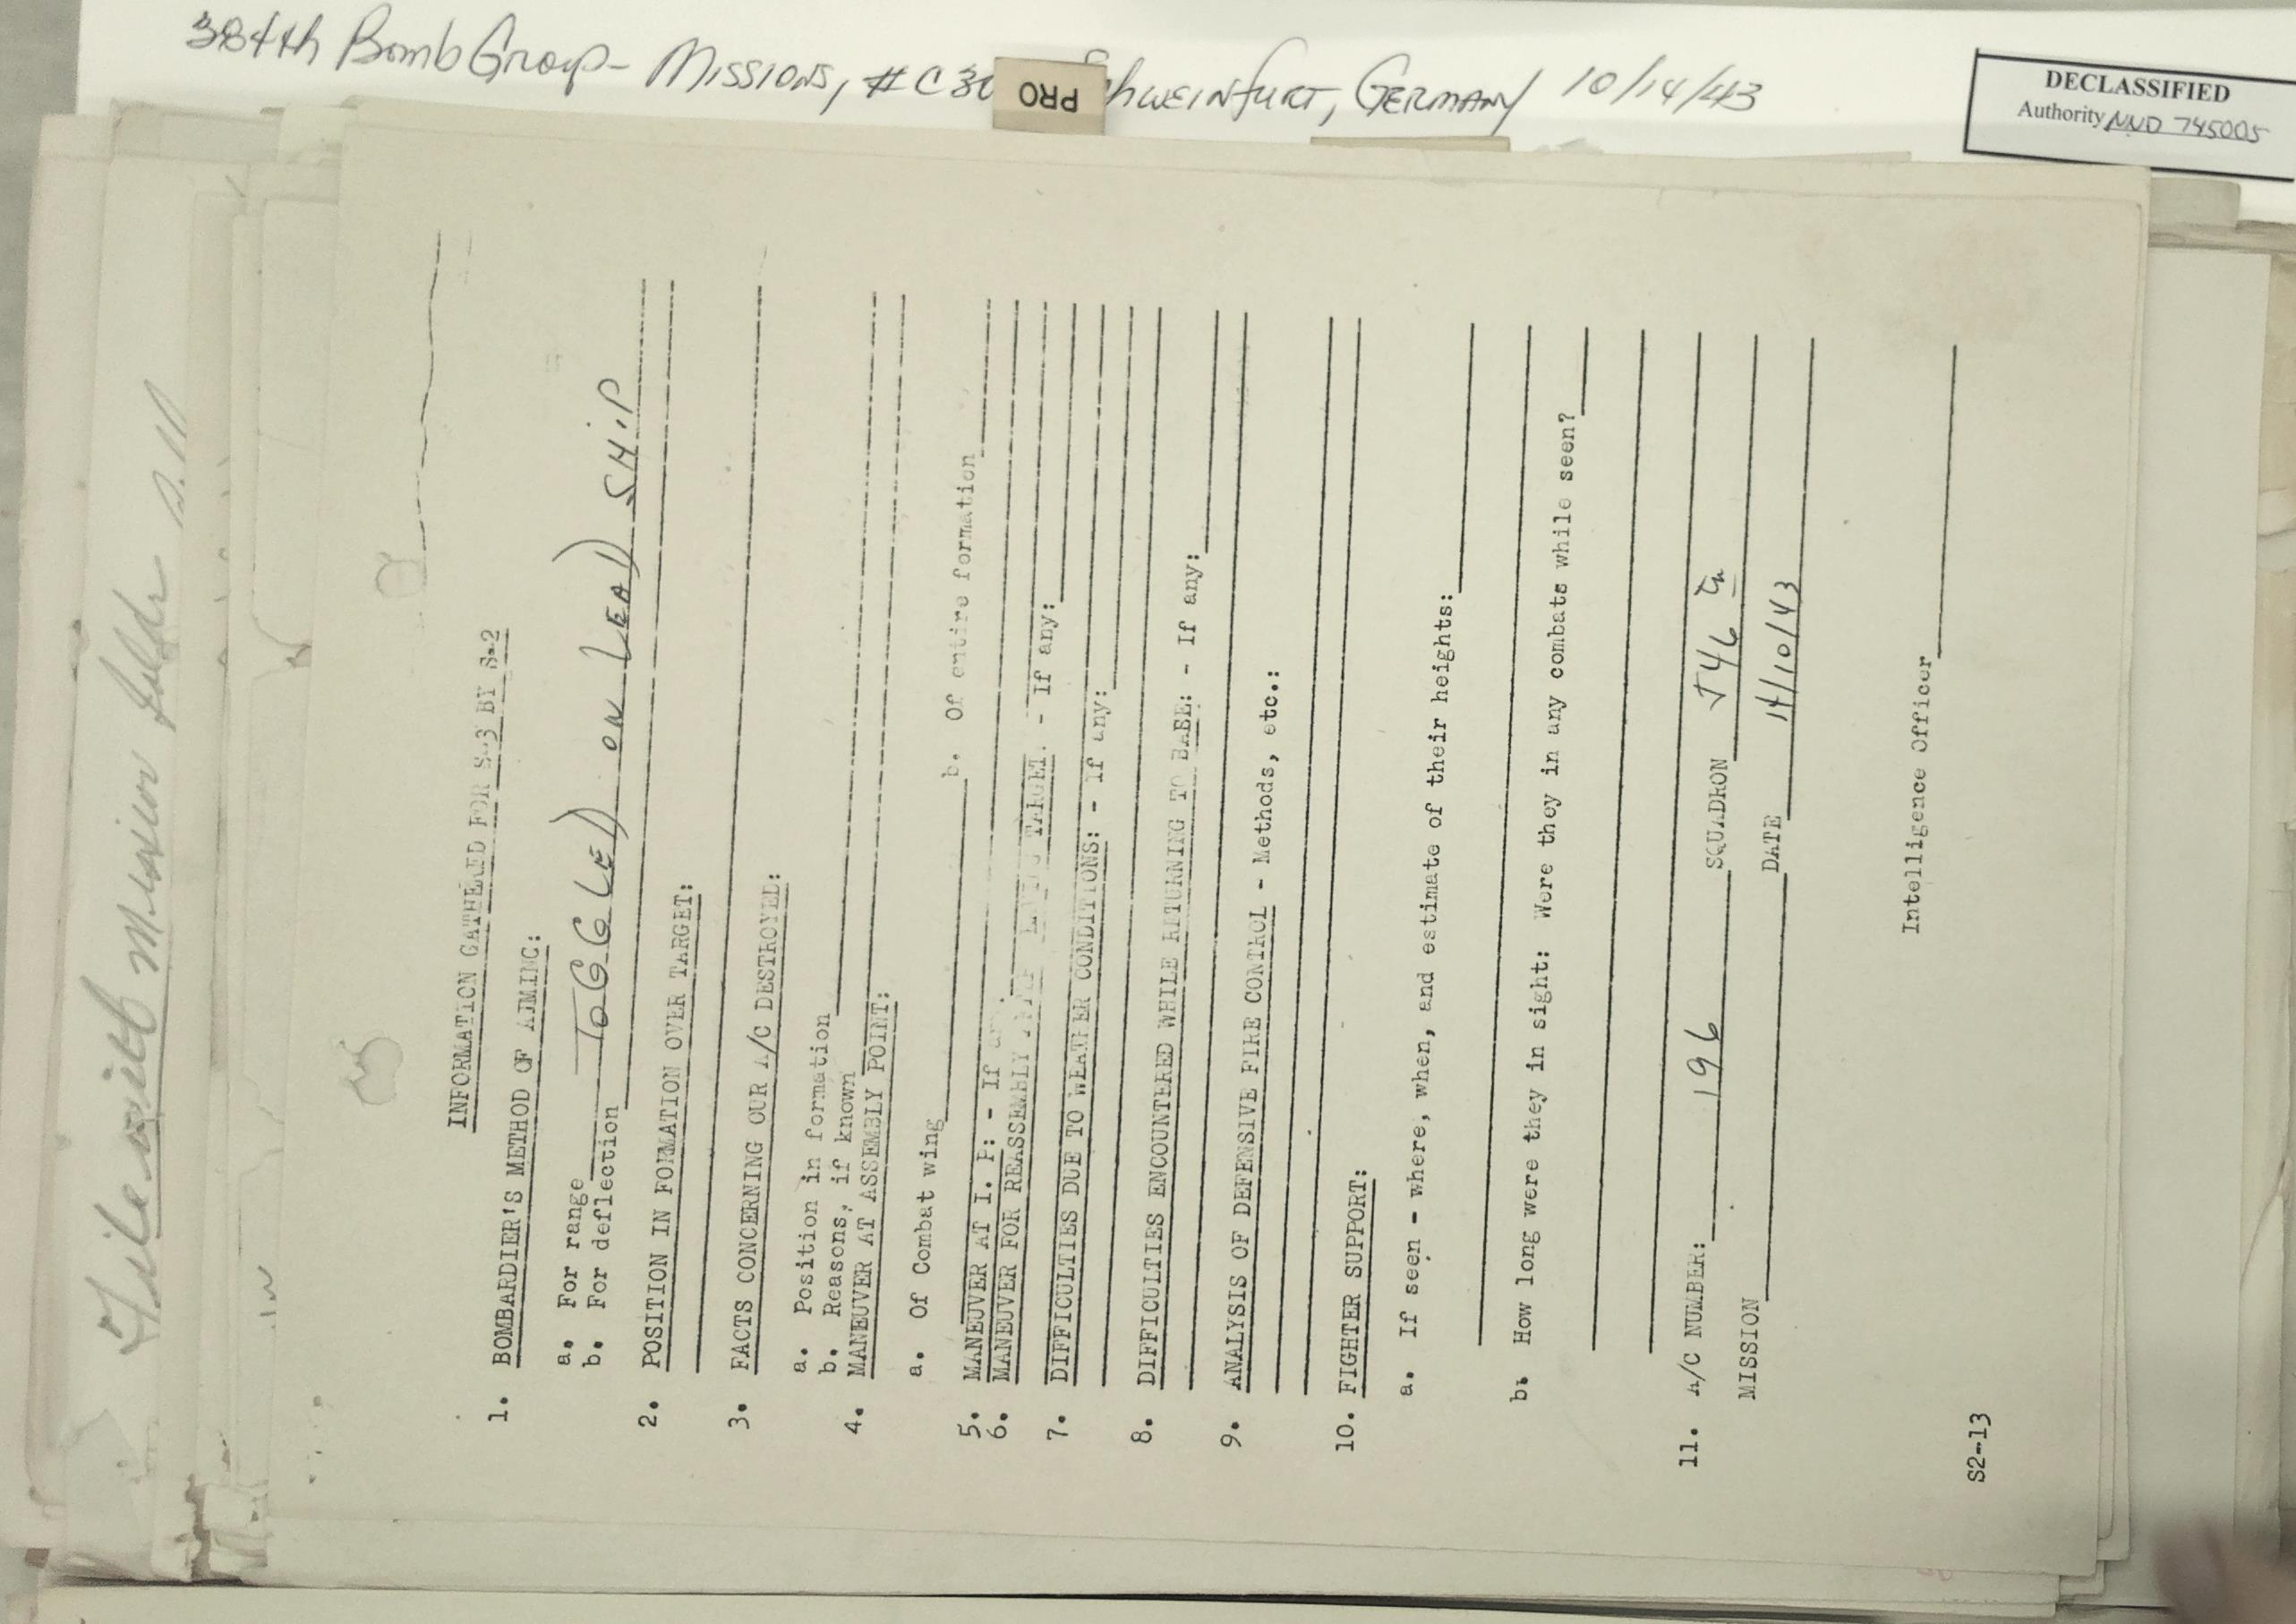 384th Bomb Group - Missions, #C30 chweinfurt, Germany 10/14/43
PRO
DECLASSIFIED
Authority NND 745005
File with Mission
INFORMATION GATHERED FOR S-3 BY S-2
1. BOMBARDIER'S METHOD OF AIMING:
a. For range
TOGGLED ON LEAD SHIP
b. For deflection
2. POSITION IN FORMATION OVER TARGET:
3. FACTS CONCERNING OUR A/C DESTROYED:
a. Position in formation
b. Reasons, if known
4. MANEUVER AT ASSEMBLY POINT:
a. Of Combat wing b. Of entire formation
5. MANEUVER AT I. P: - If any.
6. MANEUVER FOR REASSEMBLY TARGET. - If any:
7. DIFFICULTIES DUE TO WEATHER CONDITIONS: - If any:
8. DIFFICULTIES ENCOUNTERED WHILE RETURNING TO BASE: - If any:
9. ANALYSIS OF DEFENSIVE FIRE CONTROL - Methods, etc.:
10. FIGHTER SUPPORT:
a. If seen - where, when, and estimate of their heights:
b. How long were they in sight: Were they in any combats while seen?
11. A/C NUMBER: 196 SQUADRON 546
MISSION DATE 14/10/43
Intelligence Officer
S2-13